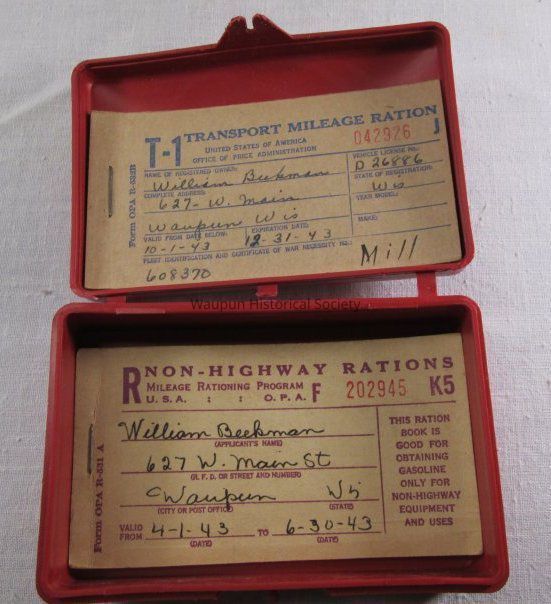 T-1 TRANSPORT MILEAGE RATION
UNITED STATES OF AMERICA
OFFICE OF PRICE ADMINISTRATION
042926 J
NAME OF REGISTERED OWNER:
William Beekman
VEHICLE LICENSE NO.:
D 26886
COMPLETE ADDRESS:
627- W. Main
STATE OF REGISTRATION:
Wis
Waupun Wis
YEAR MODEL:
VALID FROM DATE BELOW:
10-1-43
EXPIRATION DATE:
12-31-43
MAKE:
FLEET IDENTIFICATION AND CERTIFICATE OF WAR NECESSITY NO.:
608370
Mill
Form OPA R-532B
Waupun Historical Society
R NON-HIGHWAY RATIONS
MILEAGE RATIONING PROGRAM
U.S.A. : : O.P.A. F 202945 K5
William Beekman
(APPLICANT'S NAME)
627 W. Main St
(R. F. D. OR STREET AND NUMBER)
Waupun Wis
(CITY OR POST OFFICE) (STATE)
VALID FROM 4-1-43 TO 6-30-43
(DATE) (DATE)
THIS RATION
BOOK IS
GOOD FOR
OBTAINING
GASOLINE
ONLY FOR
NON-HIGHWAY
EQUIPMENT
AND USES
Form OPA R-531 A